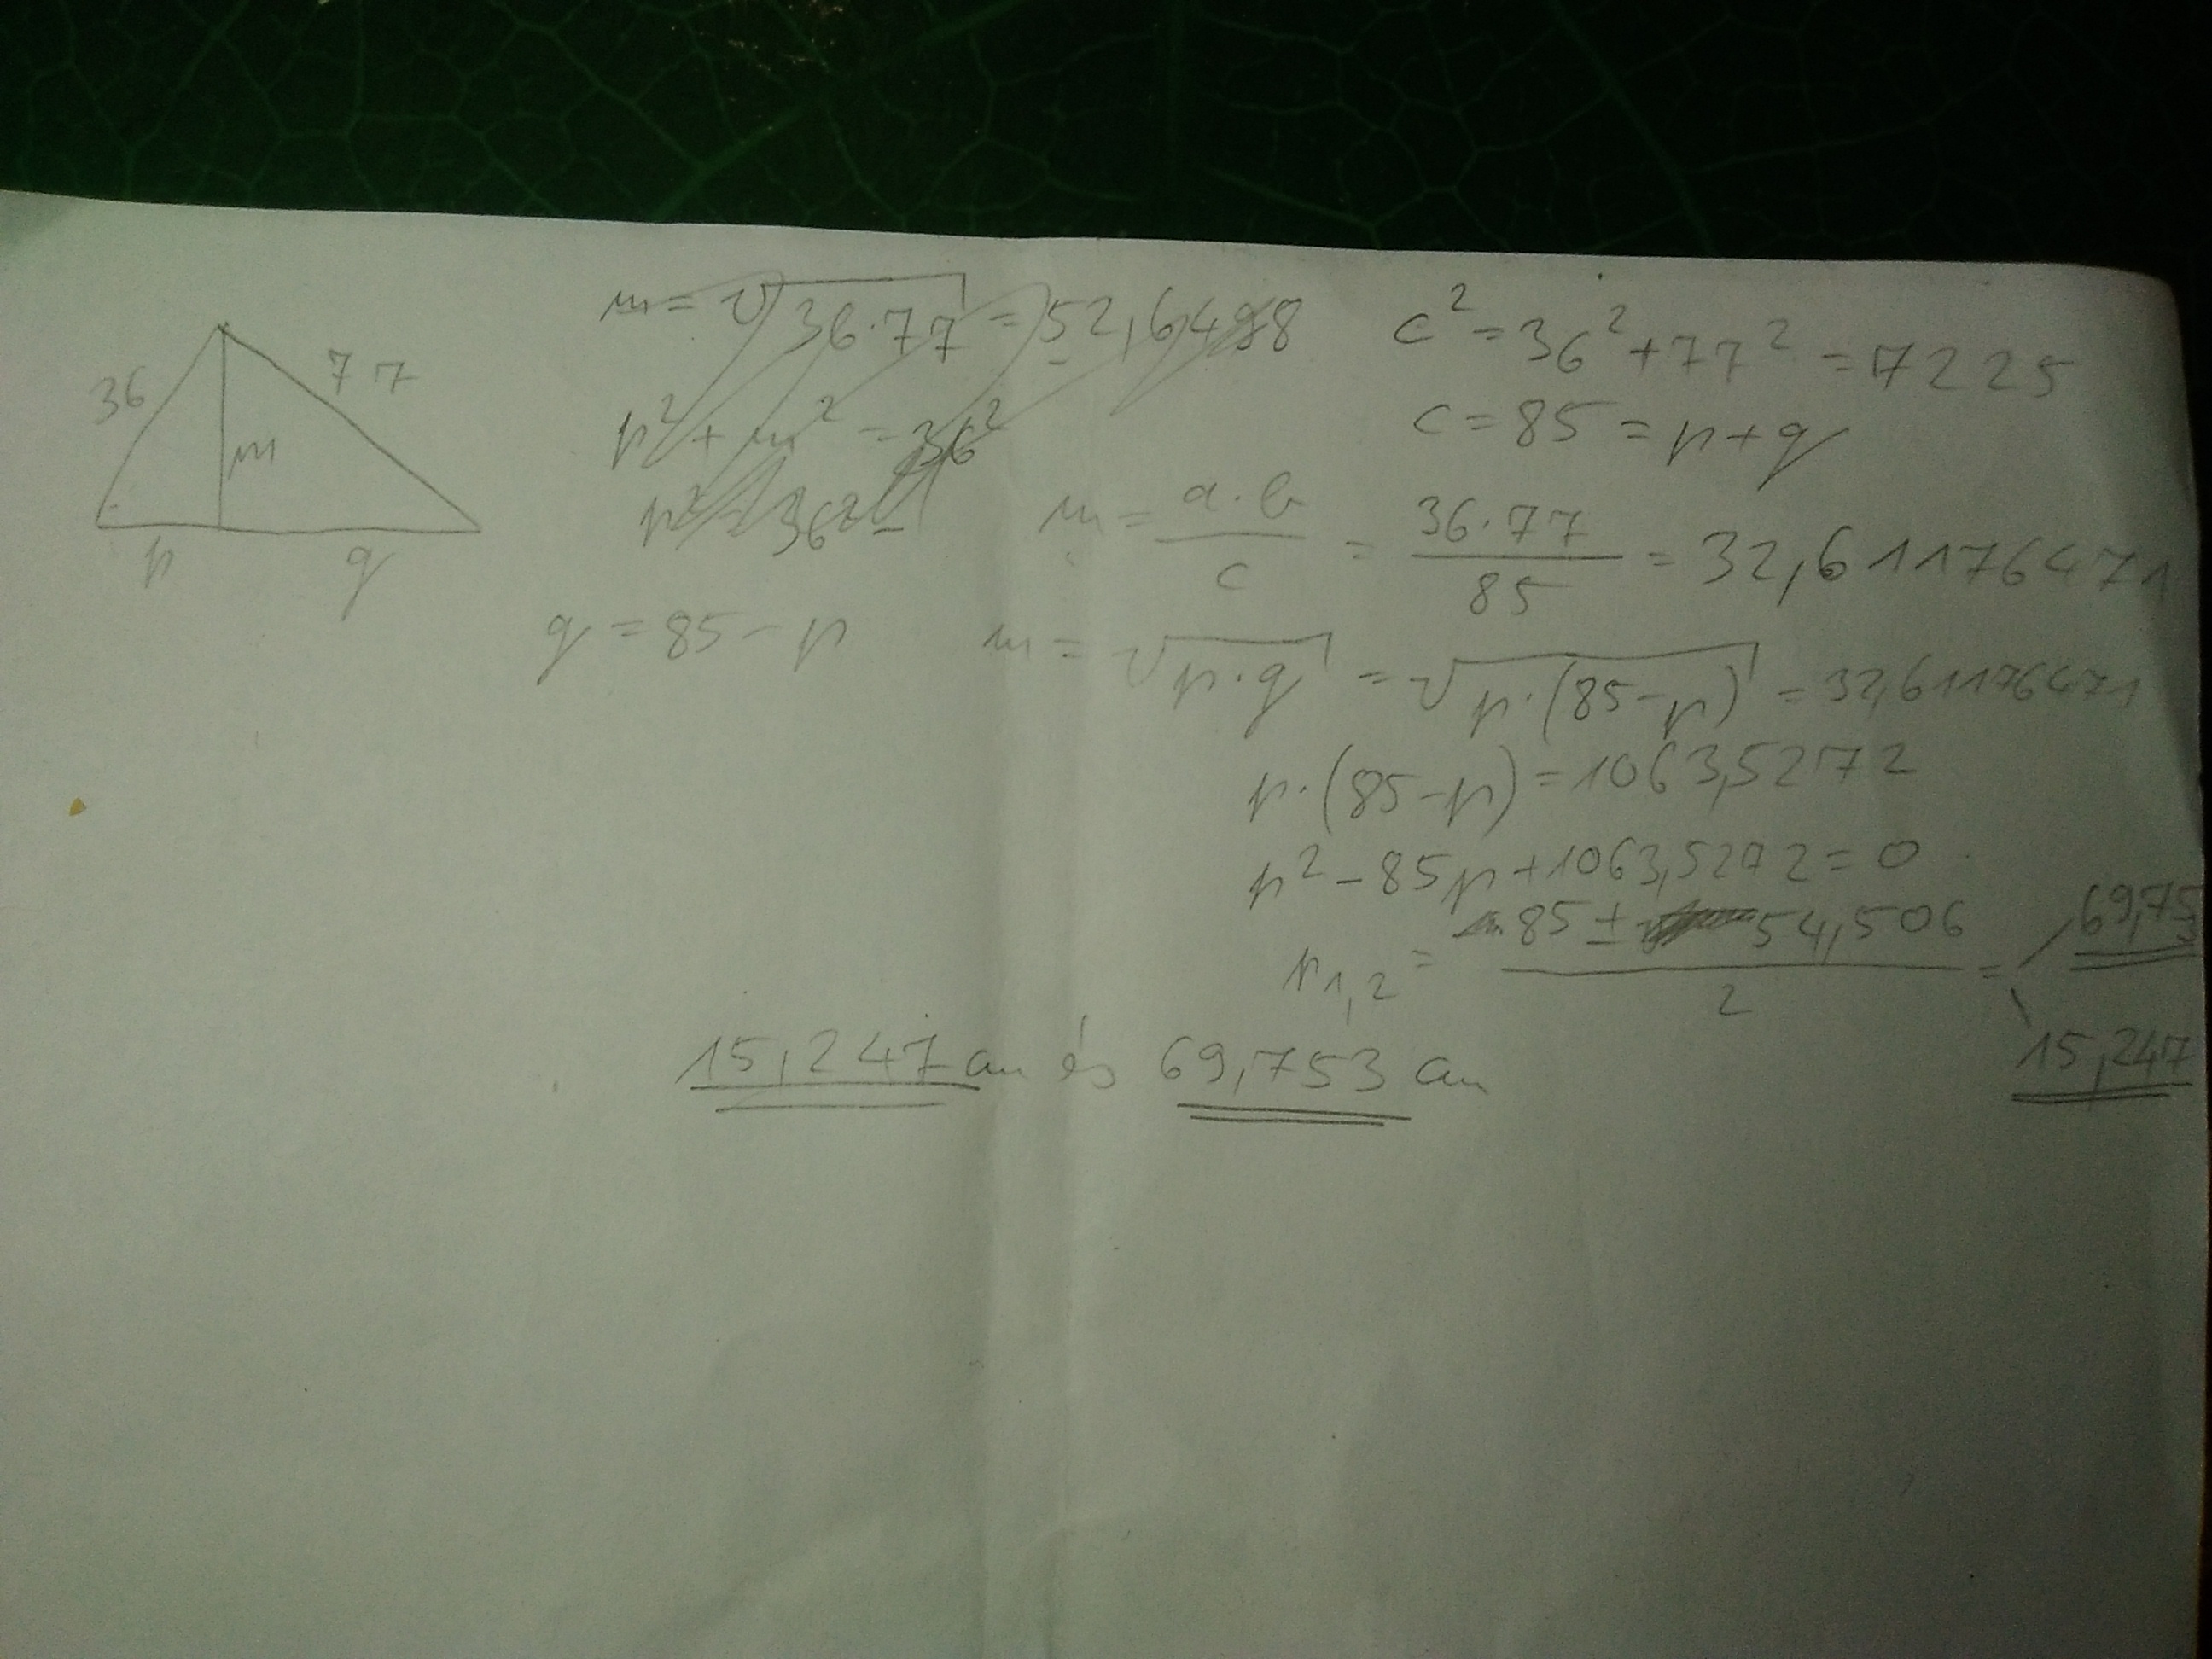 36
77
m
p
q
m = √36·77 = 52,6498
p² + m² = 36²
p² = 36² -
c² = 36² + 77² = 7225
c = 85 = p+q
m = a·b / c = 36·77 / 85 = 32,61176471
q = 85 - p
m = √p·q = √p·(85-p) = 32,61176471
p·(85-p) = 1063,5272
p² - 85p + 1063,5272 = 0
p1,2 = 85 ± 54,506 / 2 = 69,753
15,247
15,247 cm és 69,753 cm